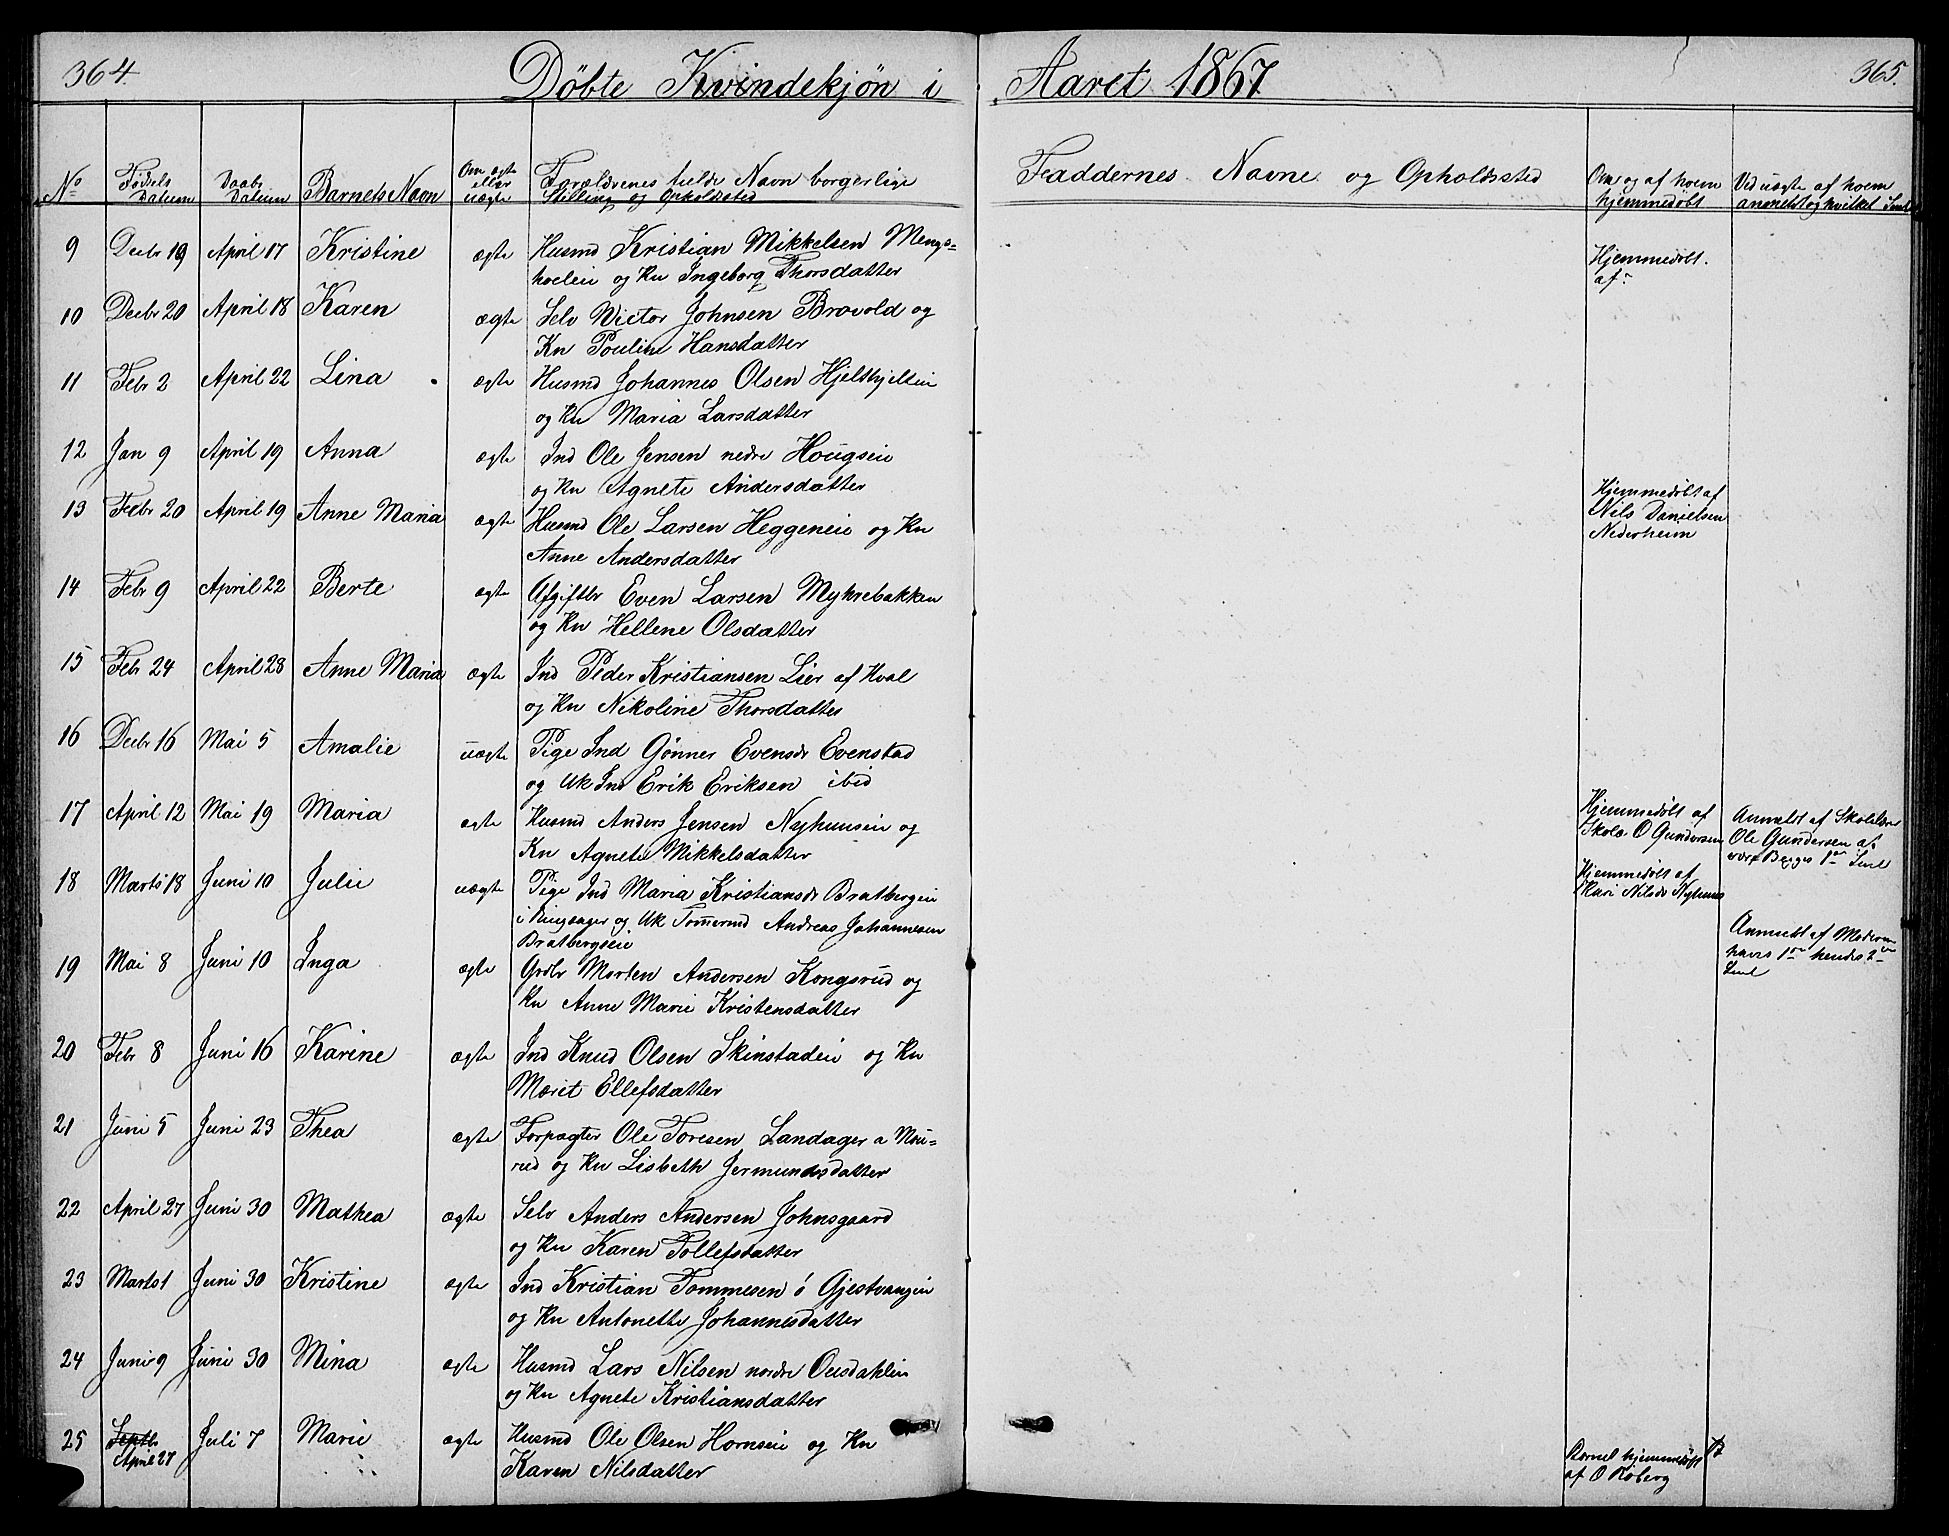 364.
Døbte Kvindekjøn i Aaret 1867
365.
No
Fødsels Datum
Daabs Datum
Barnets Navn
Om ægte eller uægte
Forældrenes fulde Navn borgerlige Stilling og Opholdssted
Faddernes Navne og Opholdssted
Om og af hvem hjemmedøbt
Ved uægte af hvem anmeldt og hvilket Leml
9 Decbr 19 April 17 Kristine ægte Husmd Kristian Mikkelsen Mengs=
holeie og Kn Ingeborg Thorsdatter
Hjemmedøbt.
af
10 Decbr 20 April 18 Karen ægte Selv Victor Johnsen Brovold og
Kn Pouline Hansdatter
11 Febr 2 April 22 Lina ægte Husmd Johannes Olsen
og Kn Maria Larsdatter
12 Jan 9 April 19 Anna ægte Ind Ole Jensen nedre Hougseie
og Kn Agnete Andersdatter
13 Febr 20 April 19 Anne Maria ægte Husmd Ole Larsen Heggeneie og Kn
Anne Andersdatter
Hjemmedøbt af
Nils Danielsen
Nederheim
14 Febr 9 April 22 Berte ægte Afgiftbr Even Larsen Myhrebakken
og Kn Hellene Olsdatter
15 Febr 24 April 28 Anne Maria ægte Ind Peder Kristiansen Lier af Hval
og Kn Nikoline Thorsdatter
16 Decbr 16 Mai 5 Amalie uægte Pige Ind Gønner Evensdr Evenstad
og Uk Ind Erik Eriksen ibid
17 April 12 Mai 19 Maria ægte Husmd Anders Jensen Nyhuuseie og
Kn Agnete Mikkelsdatter
Hjemmedøbt af
Skolæ O Gundersen
Anmeldt af Skolelærer
Ole Gundersen
18 Marts 18 Juni 10 Julie uægte Pige Ind Maria Kristiansdr Bratbergeie
i Ringsager og Uk Tømermd Andreas Johannesen
Bratbergseie
Hjemmedøbt af
Kari Nilsdr Nyhuus
Anmeldt af Moderen
hans 1ste hendes 2den
Leml
19 Mai 8 Juni 10 Inga ægte Grdbr Morten Andersen Kongsrud og
Kn Anne Marie Kristensdatter
20 Febr 8 Juni 16 Karine ægte Ind Knud Olsen Skinstadeie og Kn
Maret Ellefsdatter
21 Juni 5 Juni 23 Thea ægte Forpagter Ole Toresen Landager a Mou=
rud og Kn Lisbeth Jermundsdatter
22 April 27 Juni 30 Mathea ægte Selv Anders Andersen Johnsgaard
og Kn Karen Tollefsdatter
23 Marts 1 Juni 30 Kristine ægte Ind Kristian Tommesen ö Gjestvangeie
og Kn Antonette Johannesdatter
24 Juni 9 Juni 30 Mina ægte Husmd Lars Nilsen nordre Ousdahlen
og Kn Agnete Kristiansdatter
25 Septbr
April 27 Juli 7 Marie ægte Husmd Ole Olsen Hornseie og Kn
Karen Nilsdatter
Barnet hjemmedøbt
af O Roberg